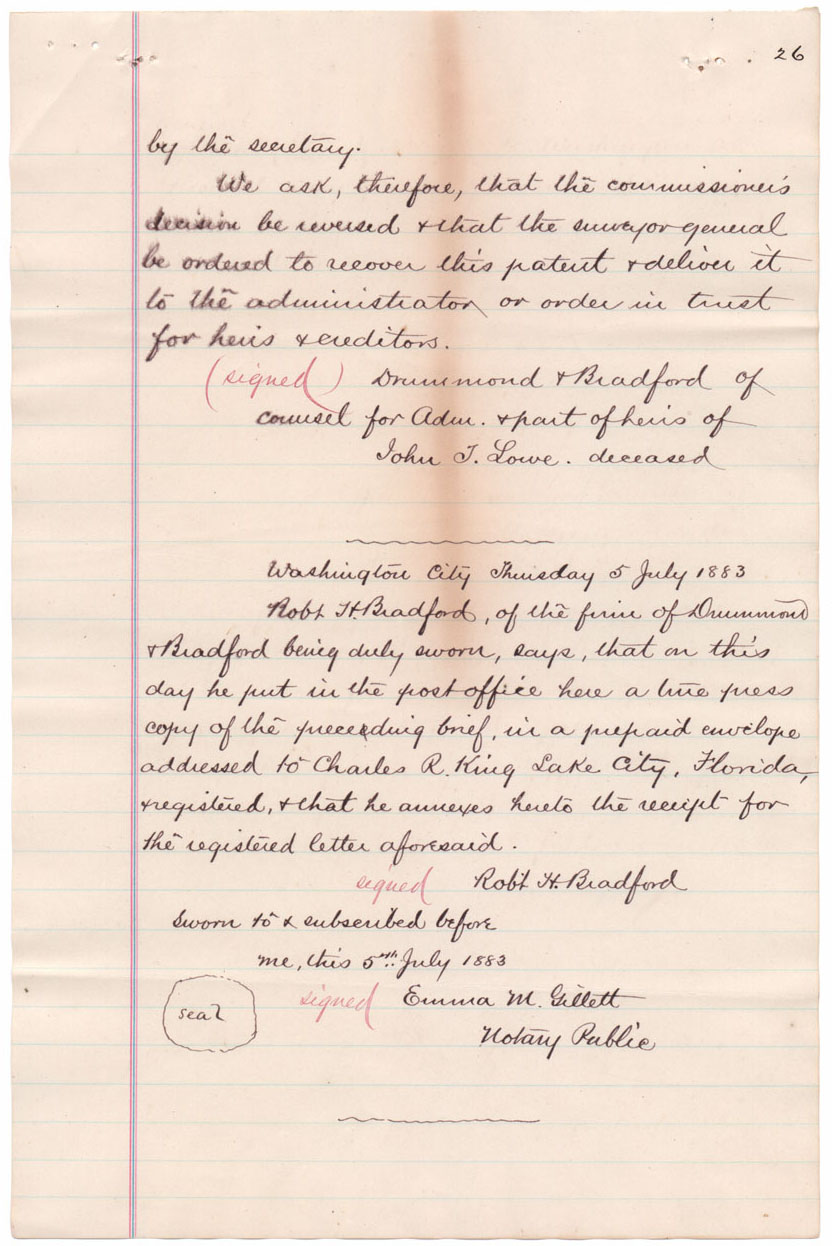 26
by the secretary.
We ask, therefore, that the commissioner's
decision be reversed & that the surveyor general
be ordered to recover this patent & deliver it
to the administrator or order in trust
for heirs & creditors.
(signed) Drummond & Bradford of
counsel for Adm. & part of heirs of
John T. Lowe. deceased
Washington City Thursday 5 July 1883
Robt H. Bradford, of the firm of Drummond
& Bradford being duly sworn, says, that on this
day he put in the post office here a true press
copy of the preceding brief, in a prepaid envelope
addressed to Charles R. King Lake City, Florida,
& registered, & that he annexes hereto the receipt for
the registered letter aforesaid.
signed Robt H. Bradford
Sworn to & subscribed before
me, this 5th July 1883
seal signed Emma M. Gillett
Notary Public